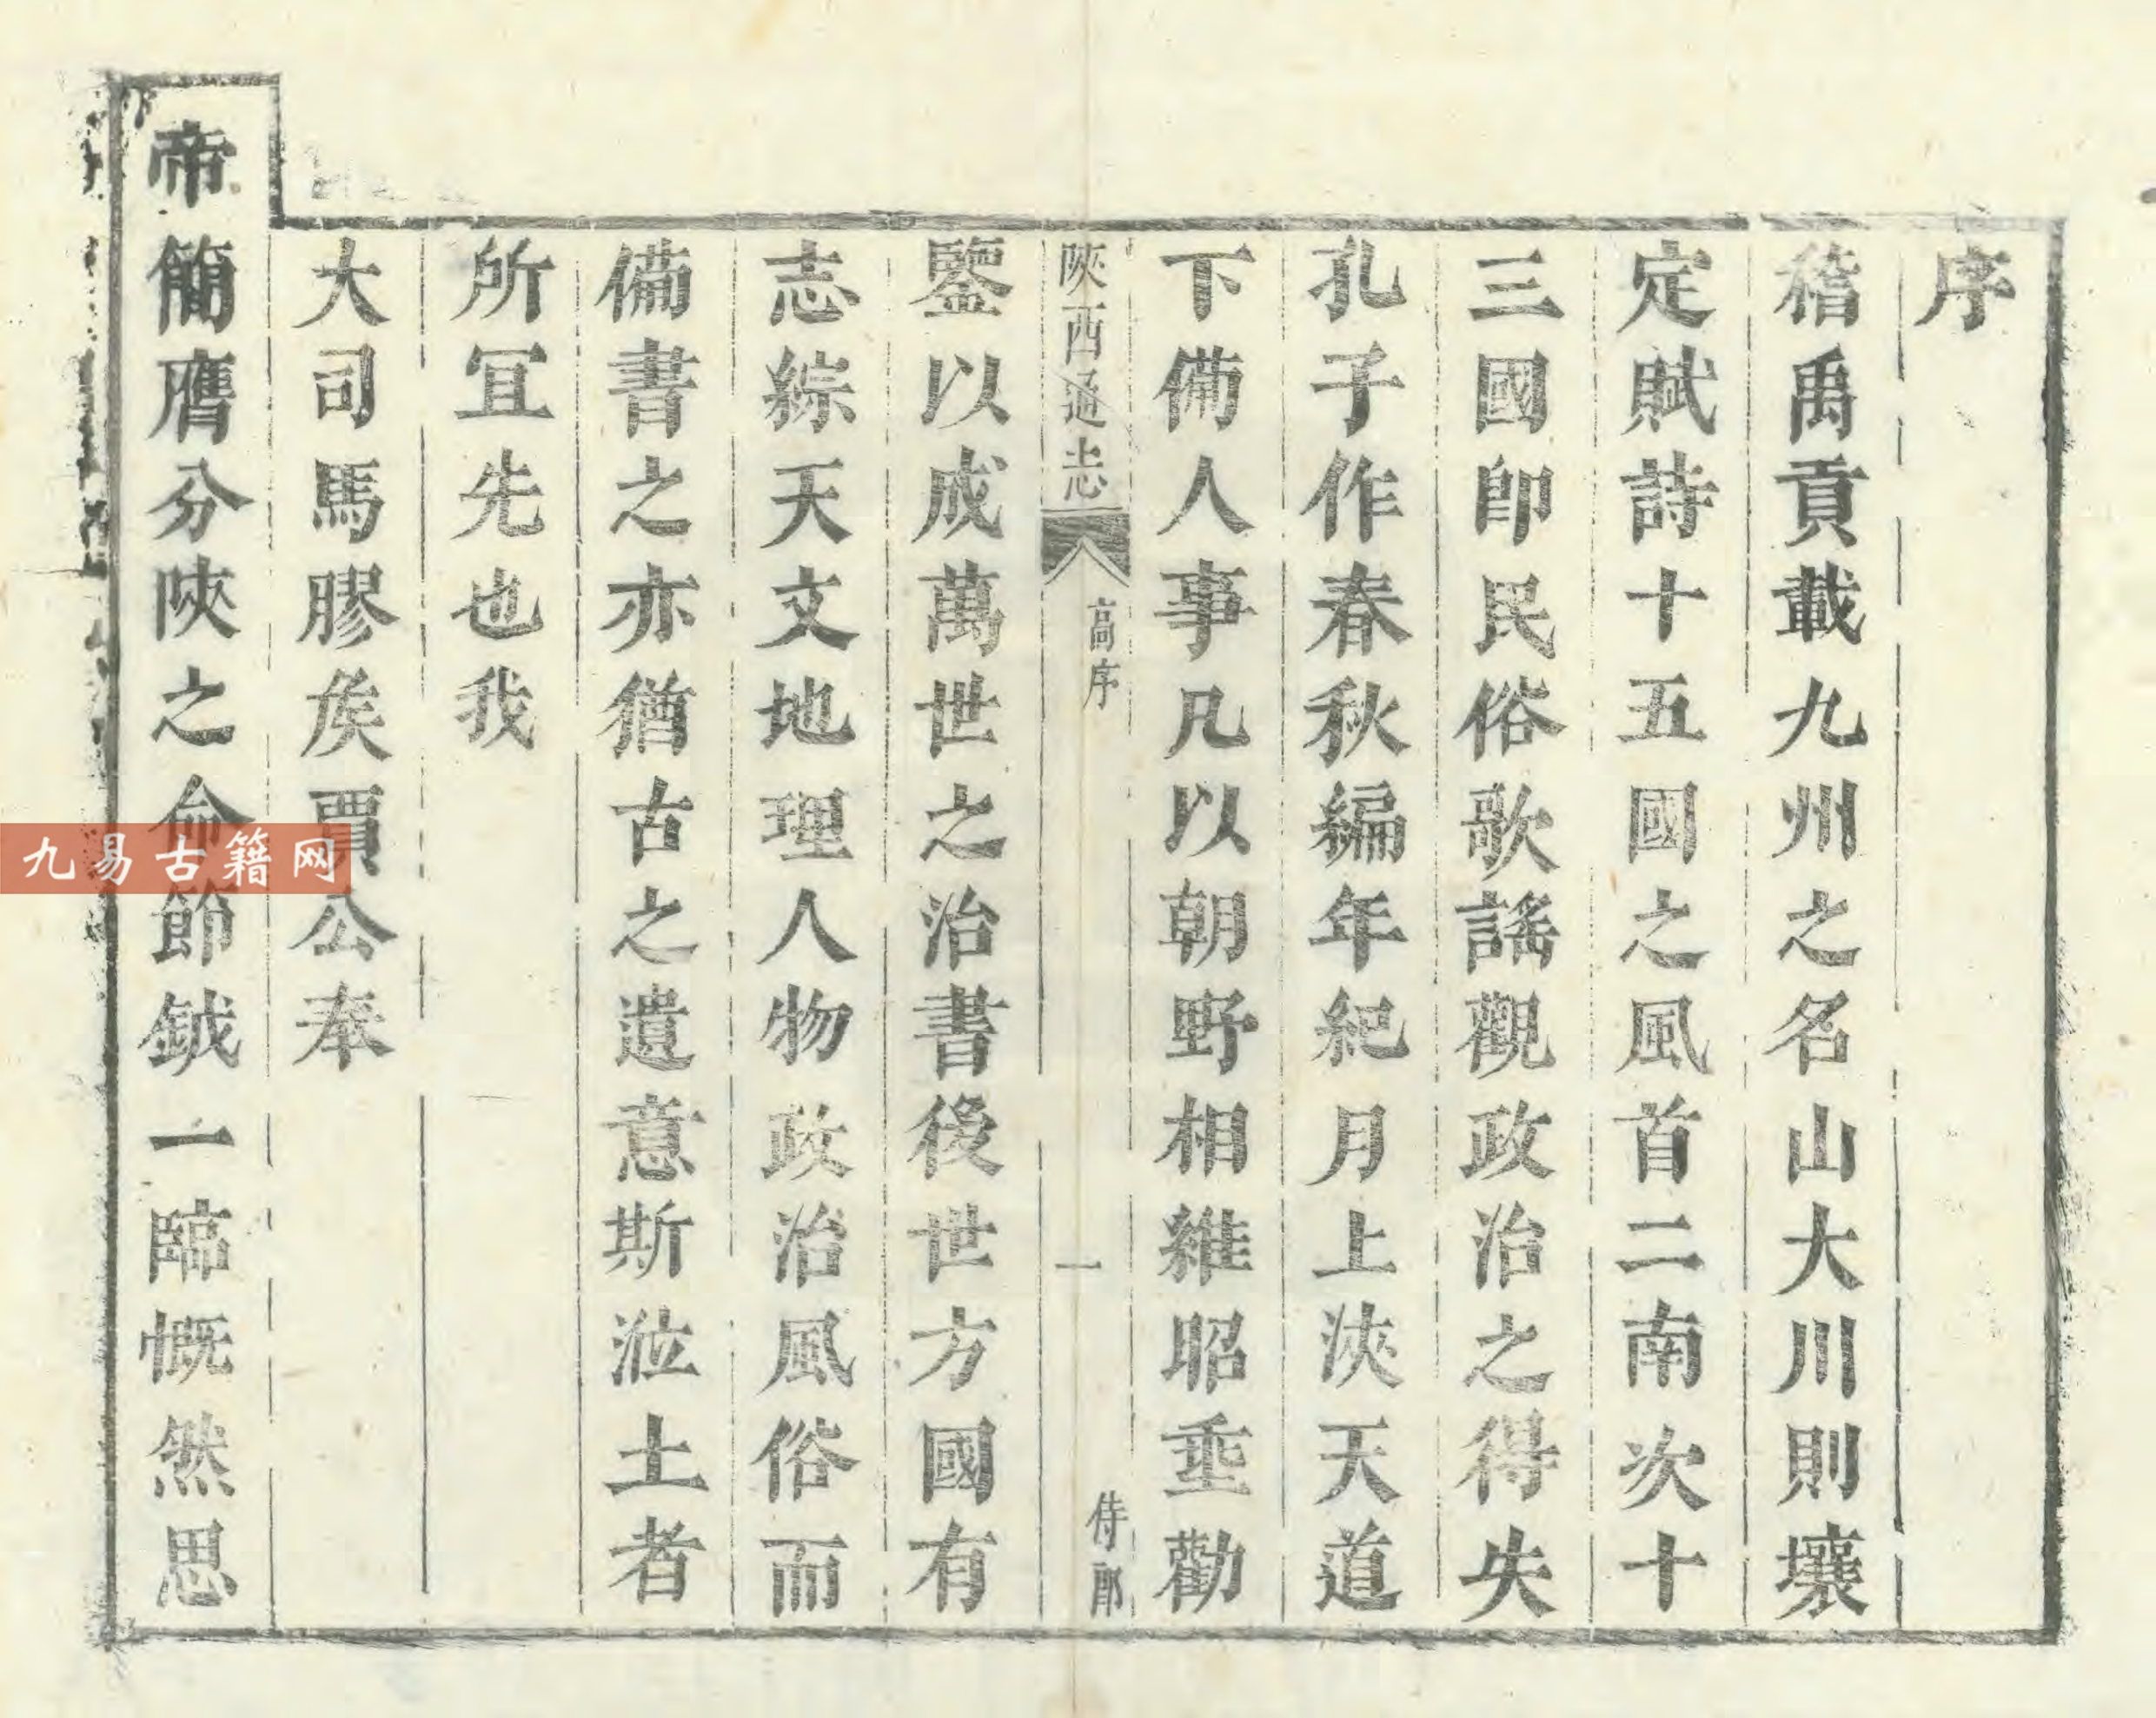 序
稽禹貢載九州之名山大川則壤
定賦詩十五國之風首二南次十
三國卽民俗歌謠觀政治之得失
孔子作春秋編年紀月上浹天道
下備人事凡以朝野相維昭垂勸
陝西通志
高序
一
侍郎
鑒以成萬世之治書後世方國有
志綜天文地理人物政治風俗而
備書之亦猶古之遺意斯涖土者
所宜先也我
大司馬膠矦賈公奉
帝簡膺分陝之命節鉞一臨慨然思
九易古籍网